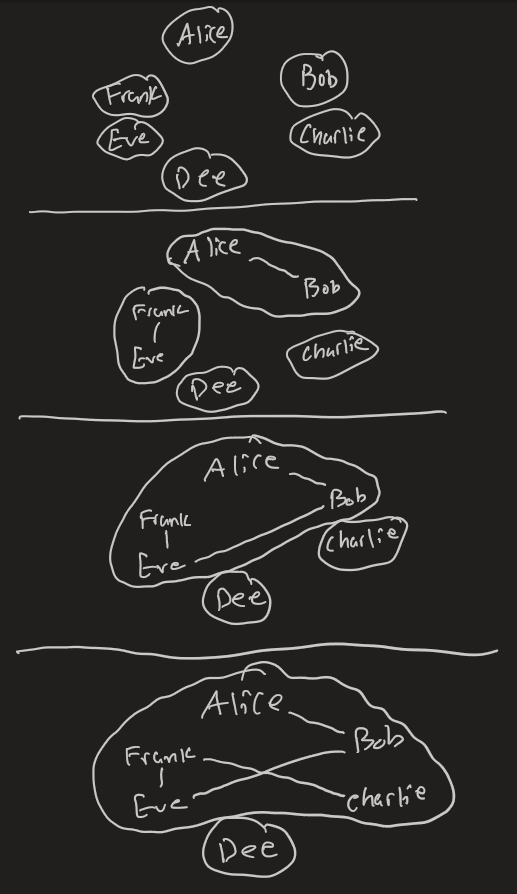 Alice
Bob
Frank
Eve
Charlie
Dee
Alice
Bob
Frank
Eve
Charlie
Dee
Alice
Bob
Frank
Charlie
Eve
Dee
Alice
Bob
Frank
Eve
Charlie
Dee